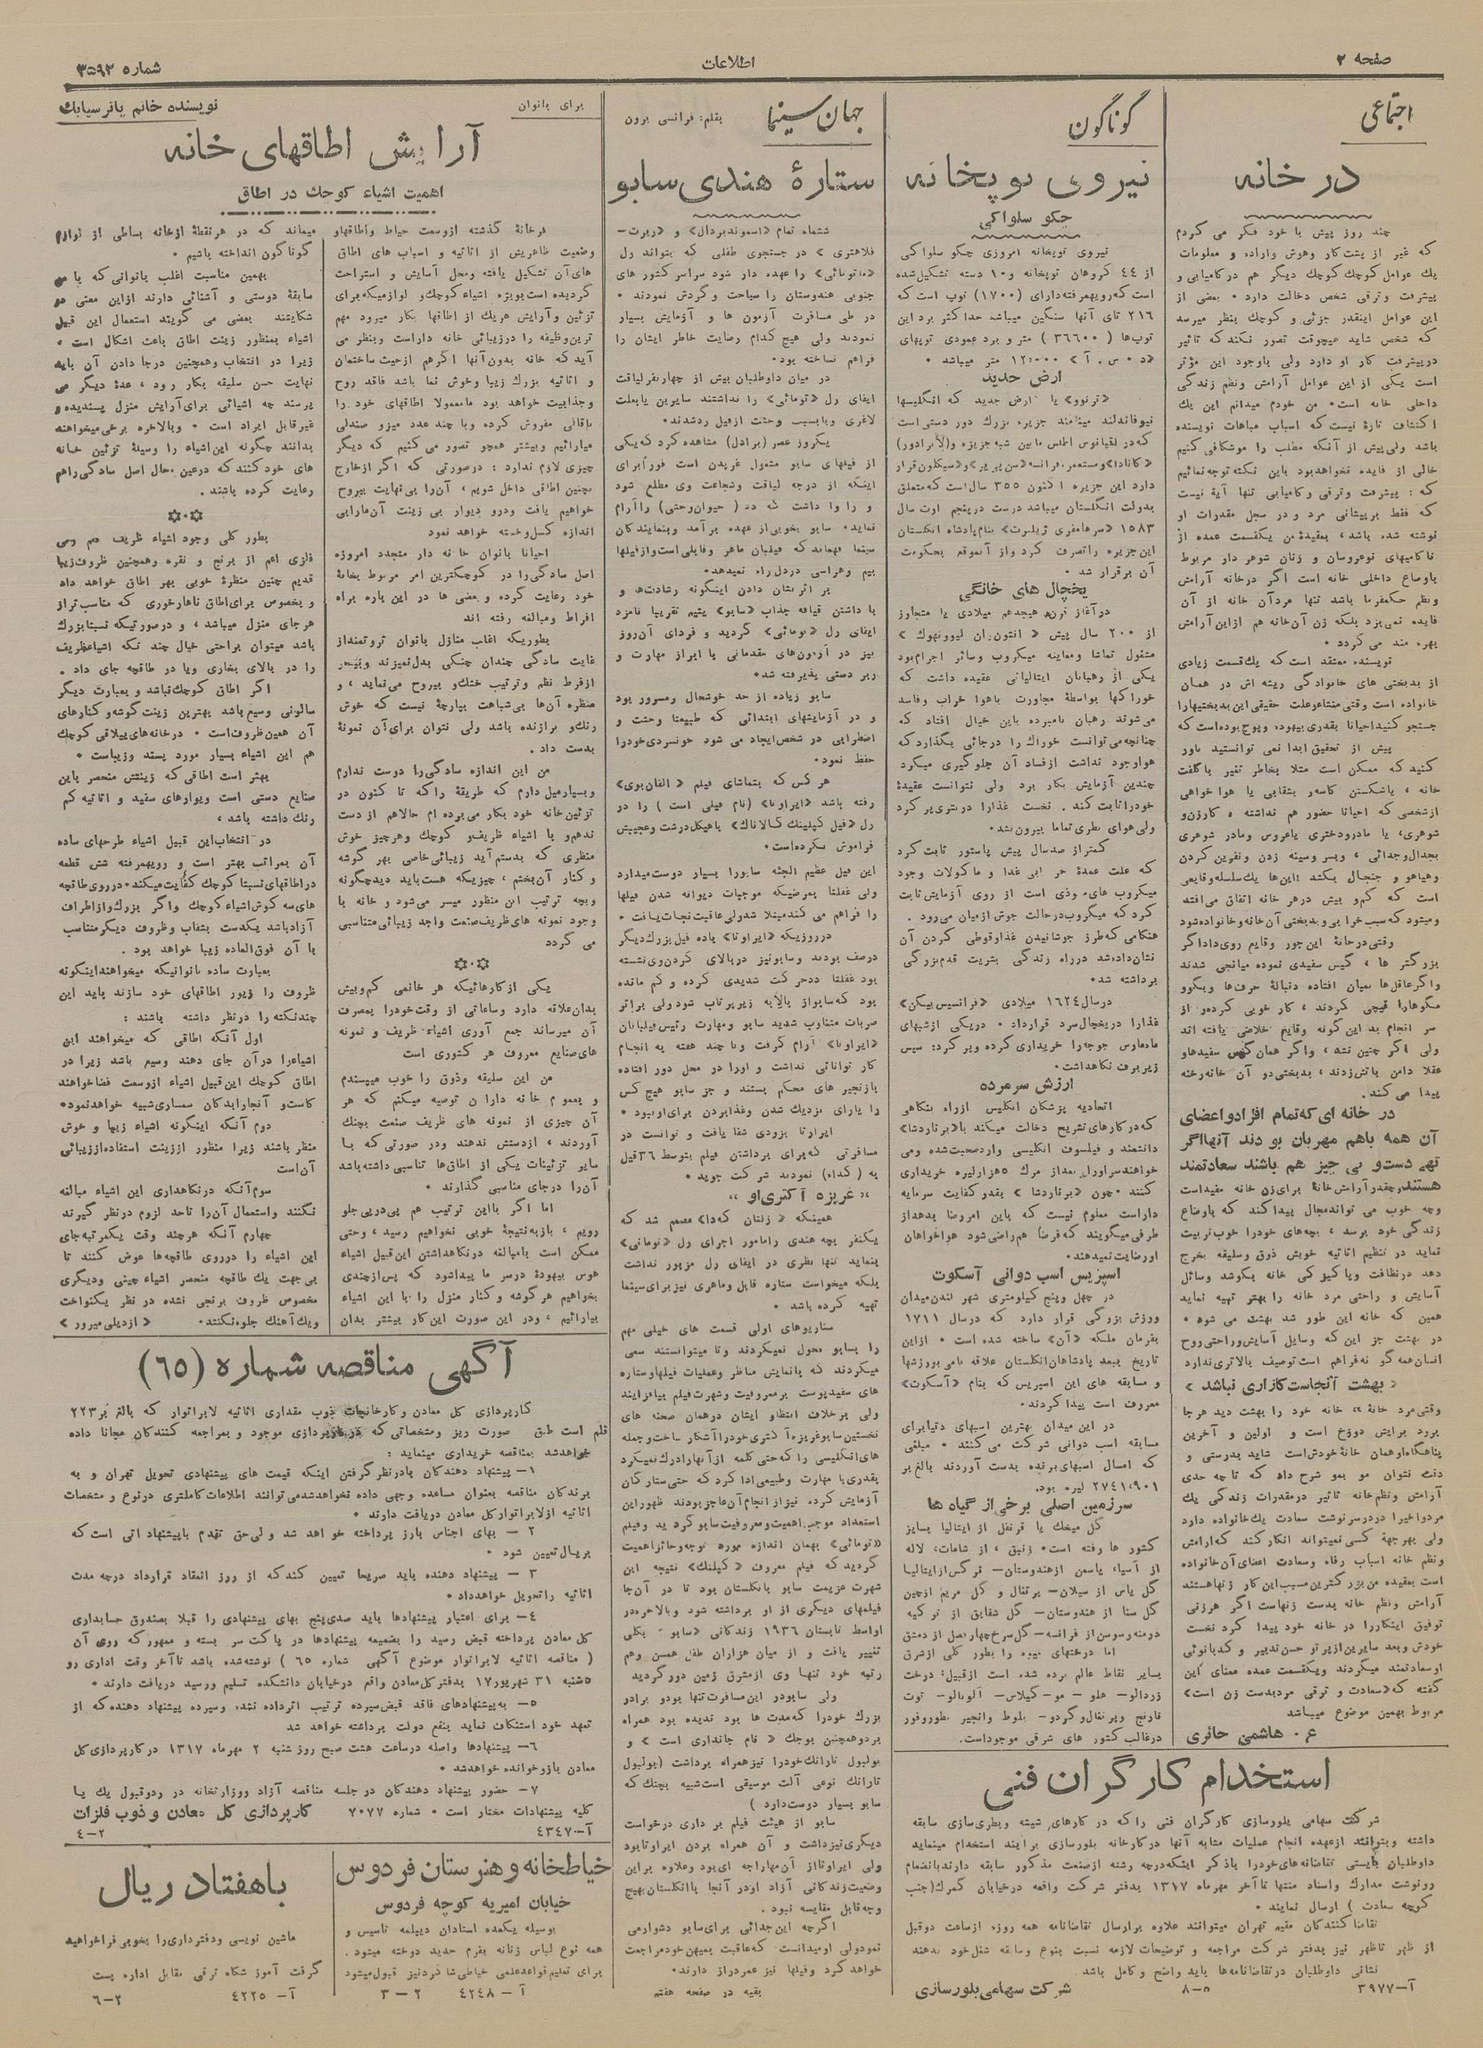 صفحه ۲
اطلاعات
شماره ۳۵۹۲
اجتماعی
در خانه
چند روز پیش با خود فکر می کردم
که غیر از پشت کار وهوش واراده و معلومات
یك عوامل کوچك کوچك دیگر هم در کامیابی و
پیشرفت و ترقی شخص دخالت دارد • بعضی از
این عوامل اینقدر جزئی و کوچك بنظر میرسد
که شخص شاید هیچوقت تصور نکند که تاثیر
در پیشرفت کار او دارد ولی باوجود این مؤثر
است یکی از این عوامل آرامش ونظم زندگی
داخلی خانه است • من خودم میدانم این یك
اکتشاف تازهٔ نیست که اسباب مباهات نویسنده
باشد ولی پیش از آنکه مطلب را موشکافی کنیم
خالی از فایده نخواهد بود باین نکته توجه نمائیم
که : پیشرفت وترقی وکامیابی تنها آیهٔ نیست
که فقط بر پیشانی مرد و در سجل مقدرات او
نوشته شده باشد ، بعقیدهٔ من یکقسمت عمده از
ناکامیهای نوعروسان و زنان شوهر دار مربوط
باوضاع داخلی خانه است اگر در خانه آرامش
ونظم حکمفرما باشد تنها مرد آن خانه از آن
فایده نمی برد بلکه زن آن خانه هم از این آرامش
بهره مند می گردد •
نویسنده معتقد است که یك قسمت زیادی
از بدبختی های خانوادگی ریشه اش در همان
خانواده است وقتی منشاء وعلت حقیقی این بدبختیها را
جستجو کنید احیانا بقدری بیهوده وپوچ بوده است که
پیش از تحقیق ابدا نمی توانستید باور
کنید که ممکن است مثلا بخاطر تغییر یا کلفت
خانه ، یا شکستن کاسه و بشقابی یا هوا خواهی
از شخصی که احیانا حضور هم نداشته ، کار زن و
شوهری ، یا مادر و دختری یا عروس ومادر شوهری
بجدال وجدائی ، وبسر وسینه زدن ونفرین کردن
وهیاهو و جنجال بکشد ؛ این ها یك سلسله وقایعی
است که کم و بیش در هر خانه اتفاق می افتد
ومیشود که سبب خرابی وبدبختی آن خانه وخانواده شود
وقتی در خانهٔ این جور وقایع روی داد اگر
بزرگتر ها ، گیس سفیدی نموده میانجی شدند
واگر عاقل ها بمیان افتاده دنبالهٔ حرف ها وبگوو
مگوهارا قیچی کردند ، کار خوبی کرده و از
سر انجام بد این گونه وقایع خلاصی یافته اند
ولی اگر چنین نشد ، واگر همان گیس سفیدها و
عقلا دامن بآتش زدند ، بدبختی در آن خانه رخنه
پیدا می کند .
در خانه ای که تمام افراد واعضای
آن همه باهم مهربان بودند آنها اگر
تهی دست و بی چیز هم باشند سعادتمند
هستند ، چقدر آرامش خانهٔ برای زن خانه مفید است
وچه خوب می تواند مجال پیدا کند که باوضاع
زندگی خود برسد ، بچه های خود را خوب تربیت
نماید در تنظیم اثاثیه خویش ذوق وسلیقه بخرج
دهد در نظافت وپاکیزگی خانه بکوشد وسائل
آسایش و راحتی مرد خانه را بهتر تهیه نماید
همین که خانه این طور شد بهشت می شود •
در بهشت جز این که وسایل آسایش وراحتی روح
انسان همه گونه فراهم است توصیف بالاتری ندارد
« بهشت آنجاست کازاری نباشد »
وقتی مرد خانهٔ ، خانه خود را بهشت دید هر جا
برود برایش دوزخ است و اولین و آخرین
پناهگاه او همان خانهٔ خودش است شاید بدرستی و
دقت نتوان مو بمو شرح داد که تا چه حدی
آرامش ونظم خانه تاثیر در مقدرات زندگی یك
مرد واخیرا در سر نوشت سعادت یك خانواده دارد
ولی بهر جهة کسی نمیتواند انکار کند که آرامش
ونظم خانه اسباب رفاه وسعادت اعضای آن خانواده
است بعقیده من بزرگترین مسبب این کار زنها هستند
آرامش ونظم خانه بدست زنهاست اگر هر زنی
توفیق اینکار را در خانه خود پیدا کرد نخست
خودش و بعد سایرین از پرتو حسن تدبیر و کدبانوئی
او سعادتمند میگردند ویکقسمت عمده معنای این
گفته که «سعادت و ترقی مرد بدست زن است»
مربوط بهمین موضوع میباشد
ع • هاشمی حائری
گوناگون
نیروی توپخانه
چکو سلواکی
نیروی توپخانه امروزی چکو سلواکی
از ٤٤ گروهان توپخانه و۱۰ دسته تشکیل شده
است که رویهمرفته دارای (۱۷۰۰) توپ است که
۲۱۶ تای آنها سنگین میباشد حداکثر برد این
توپ ها ( ۳۶٦۰۰ ) متر و برد عمودی توپهای
« د • س • آ » ۱۲،۰۰۰ متر میباشد •
ارض جدید
«ترنوو» یا ارض جدید که انگلیسها
نیو فاندلند مینامند جزیره بزرگ دور دستی است
که در اقیانوس اطلس ما بین شبه جزیره و(لابرادور)
«کانادا» ومستعمره فرانسه «سن پییر» و«میکلون قرار
دارد این جزیره اکنون ۳۵۵ سال است که متعلق
بدولت انگلستان میباشد درست در پنجم اوت سال
۱۵۸۳ «سرهامفری ژیلبرت» بنام پادشاه انگلستان
این جزیره را تصرف کرد واز آنموقع بحکومت
آن برقرار شد •
یخچال های خانگی
در آغاز قرن هیجدهم میلادی یا متجاوز
از ۲۰۰ سال پیش « انتون ان لیوونهوك »
مشغول تماشا ومعاینه میکروب وسائر اجرام بود
یکی از رهبانان ایتالیائی عقیده داشت که
خوراکها بواسطهٔ مجاورت باهوا خراب وفاسد
می شوند رهبان نامبرده باین خیال افتاد که
چنانچه می توانست خوراك را در جائی بگذارد که
هوا وجود نداشت از فساد آن جلوگیری میکرد
چندین آزمایش بکار برد ولی نتوانست عقیدهٔ
خود را ثابت کند . نخست غذا را در بطری پر کرد
ولی هوای بطری تماما بیرون نشد •
کمتر از صد سال پیش پاستور ثابت کرد
که علت عمدهٔ خرابی غذا و ماکولات وجود
میکروب های موذی است از روی آزمایش ثابت
کرد که میکروب در حالت جوش از میان می رود .
هنگامی که طرز جوشانیدن غذا وقوطی کردن آن
نشان داده شد در راه زندگی بشریت قدم بزرگی
برداشته شد •
در سال ۱٦۲٤ میلادی «فرانسیس بیکن»
غذا را در یخچال سرد قرار داد • در یکی از شبهای
ماه مارس جوجه را خریداری کرده و پر کرد : سپس
زیر برف نگاهداشت •
ارزش سر مرده
اتحادیه پزشکان انگلیس از راه بنگاهی
که در کارهای تشریح دخالت میکند با «برناردشا»
دانشمند و فیلسوف انگلیسی وارد صحبت شده ومی
خواهند سر اورا بعد از مرگ ۵ هزار لیره خریداری
کنند • چون « برناردشا » بقدر کفایت سرمایه
دار است معلوم نیست که باین امر رضا بدهد از
طرفی میگویند که فرضاً هم راضی شود هواخواهان
او رضایت نمیدهند •
اسپریس اسب دوانی آسکوت
در چهل وپنج کیلومتری شهر لندن میدان
ورزش بزرگی قرار دارد که در سال ۱۷۱۱
بفرمان ملکه «آن» ساخته شده است • از این
تاریخ ببعد پادشاهان انگلستان علاقه تامی بورزشها
و مسابقه های این اسپریس که بنام «آسکوت»
معروف است پیدا کردند •
در این میدان بهترین اسبهای دنیا برای
مسابقه اسب دوانی شرکت می کنند • مبلغی
که امسال اسبهای برنده بدست آوردند بالغ بر
۲۷٤۱،۹۰۱ لیره بود.
سر زمین اصلی برخی از گیاه ها
گل میخك یا قرنفل از ایتالیا بسایر
کشور ها رفته است • زنبق ، از شامات ، لاله
از آسیا ، یاسمن از هندوستان – نرگس از ایتالیا
گل یاس از سیلان – پرتقال و گل مریم از چین
گل سنا از هندوستان – گل شقایق از ترکیه
درمنه وسوسن از فرانسه – گل سرخ چهار فصل از دمشق
اما درختهای میوه را بطور کلی از شرق
بسایر نقاط عالم برده شده است از قبیل : درخت
زردالو – هلو – مو – گیلاس – آلوبالو – توت
نارنج وپرتقال وگردو – بلوط وانجیر بطور وفور
در غالب کشور های شرقی موجود است .
جهان سینما
بقلم : فرانسی برون
ستارهٔ هندی سابو
ششماه تمام «اسموند بردال» و «ربرت –
فلاهتری » در جستجوی طفلی که بتواند رل
«توماتی» را عهده دار شود سراسر کشور های
جنوبی هندوستان را سیاحت و گردش نمودند •
در طی مسافرت آزمون ها و آزمایش بسیار
نمودند ولی هیچ کدام رضایت خاطر ایشان را
فراهم نساخته بود •
در میان داوطلبان بیش از چهار نفر لیاقت
ایفای رل «توماتی» را نداشتند سایرین یا بعلت
لاغری ویا بسبب وحشت از فیل رد شدند.
یکروز عصر (بردال) مشاهده کرد که یکی
از فیلهای سابو مشغول غریدن است فوراً برای
اینکه از درجه لیاقت وشجاعت وی مطلع شود
و را وا داشت که « حیوان وحشی» را آرام
نماید • سابو بخوبی از عهده برآمد وبنمایندگان
سینما فهماند که فیلبان ماهر وقابلی است واز فیلها
بیم وهراسی در دل راه نمیدهد .
بر اثر نشان دادن اینگونه رشادت ها و
با داشتن قیافه جذاب «سابو» یتیم تقریبا نامزد
ایفای رل «توماتی» گردید و فردای آن روز
نیز در آزمون های مقدماتی با ابراز مهارت و
زبر دستی پذیرفته شد •
سابو زیاده از حد خوشحال و مسرور بود
و در آزمایشهای ابتدائی که طبیعتا وحشت و
اضطرابی در شخص ایجاد می شود خونسردی خود را
حفظ نمود •
هر کس که بتماشای فیلم « الفان بوی»
رفته باشد «ایراوتا» (نام فیلی است ) را در
رل «فیل کیپلینگ کالاناگ» با هیکل درشت وعجیبش
فراموش نکرده است •
این فیل عظیم الجثه سابو را بسیار دوست میدارد
ولی غفلتا بمرضیکه موجبات دیوانه شدن فیلها
را فراهم می کند مبتلا شد ولی عاقبت نجات یافت •
در روزیکه «ایراوتا» یازده فیل بزرگ دیگر
در صف بودند وسابو نیز در بالای گردن وی نشسته
بود غفلتا در حرکت شدیدی کرده و کم مانده
بود که سابو از بالا به زیر پرتاب شود ولی بر اثر
ضربات متناوب شدید سابو ومهارت رئیس فیلبانان
«ایراوتا» آرام گرفت وتا چند هفته به انجام
کار توانائی نداشت و اورا در محل دور افتاده
با زنجیر های محکم بستند و جز سابو هیچ کس
را یارای نزدیك شدن وغذا بردن برای او نبود •
ایراوتا بزودی شفا یافت و توانست در
مسافرتی که برای برداشتن فیلم بتوسط ۳۶ فیل
به ( کدا) نمودند شرکت جوید •
« غریزه آکتری او »
همینکه « زلتان کردا» مصمم شد که
یکنفر بچه هندی را مامور اجرای رل «توماتی»
بنماید تنها نظری در ایفای رل مزبور نداشت
بلکه میخواست ستاره قابل وماهری نیز برای سینما
تهیه کرده باشد •
سناریوهای اولی قسمت های خیلی مهم
را بسابو محول نمیکردند وتا میتوانستند سعی
میکردند که با نمایش مناظر وعملیات فیلها وستاره
های سفید پوست بر معروفیت وشهرت فیلم بیافزایند
ولی بر خلاف انتظار ایشان در همان صحنه های
نخستین سابو غریزه آکتری خود را آشکار ساخت وجمله
های انگلیسی را که حتی کلمه از آنها را درك نمیکرد
بقدری با مهارت وطبیعی ادا کرد که حتی ستارگان
آزمایش کرده نیز از انجام آن عاجز بودند ظهور این
استعداد موجب اهمیت و معروفیت سابو گردید وفیلم
«توماتی» بهمان اندازه مورد توجه وحائز اهمیت
گردید که فیلم معروف «کپلنگ» نتیجه این
شهرت عزیمت سابو بانگلستان بود تا در آن جا
فیلمهای دیگری از او برداشته شود وبالاخره در
اواسط تابستان ۱۹۳٦ زندگانی « سابو » بکلی
تغییر یافت و از میان هزاران طفل همسن وهم
رتبه خود تنها وی از مشرق زمین دور گردید
ولی سابو در این مسافرت تنها نبود و برادر
بزرگ خود را که مدت ها بود ندیده بود همراه
برد و همچنین بوجك « نام جانداری است » و
بولبول تارانك خود را نیز همراه برداشت (بولبول
تارانك نوعی آلت موسیقی است شبیه بچنگ که
سابو بسیار دوست دارد )
سابو از هیئت فیلم بر داری درخواست
دیگری نیز داشت و آن همراه بردن ایراوتا بود
ولی ایراوتا از آن مهاراجه ای بود وعلاوه بر این
وضعیت زندگانی آزاد او در آنجا با انگلستان بهیچ
وجه قابل مقایسه نبود .
اگرچه این جدائی برای سابو دشوار می
نمود ولی او میدانست که عاقبت بمیهن خود مراجعت
خواهد کرد وفیلها نیز عمر دراز دارند •
بقیه در صفحه هفتم
برای بانوان
نویسنده خانم یافر سیابك
آرایش اطاقهای خانه
اهمیت اشیاء کوچك در اطاق
در خانهٔ گذشته از وسعت حیاط واطاقها و
وضعیت ظاهریش از اثاثیه و اسباب های اطاق
های آن تشکیل یافته ومحل آسایش و استراحت
گردیده است بویژه اشیاء کوچك و لوازمیکه برای
تزئین وآرایش هر یك از اطاقها بکار میرود مهم
ترین وظیفه را در زیبائی خانه داراست و بنظر می
آید که خانه بدون آنها اگر هم از حیث ساختمان
و اثاثیه بزرگ زیبا وخوش نما باشد فاقد روح
وجذابیت خواهد بود ما معمولا اطاقهای خود را
باقالی مفروش کرده و با چند عدد میز و صندلی
میارائیم و بیشتر همچو تصور می کنیم که دیگر
چیزی لازم ندارد : در صورتی که اگر از خارج
بچنین اطاقی داخل شویم ، آن را بی نهایت بیروح
خواهیم یافت ودر و دیوار بی زینت آن مارا بی
اندازه کسل و خسته خواهد نمود
احیانا بانوان خانه دار متجدد امروزه
اصل سادگی را در کوچکترین امر مربوط بخانهٔ
خود رعایت کرده و بعضی ها در این باره براه
افراط ومبالغه رفته اند
بطوریکه اغلب منازل بانوان ثروتمند از
غایت سادگی چندان چنگی بدل نمیزند و بیشتر
از فرط نظم وترتیب خشك وبیروح می نماید ، و
منظره آن ها بی شباهت بپارچهٔ نیست که خوش
رنگ و برازنده باشد ولی نتوان برای آن نمونهٔ
بدست داد .
من این اندازه سادگی را دوست ندارم
وبسیار میل دارم که طریقهٔ را که تا کنون در
تزئین خانه خود بکار می برده ام حالا هم از دست
ندهم و با اشیاء ظریف و کوچك وهر چیز خوش
منظری که بدستم آید زیبائی خاصی بهر گوشه
و کنار آن بخشم ، چیزیکه هست باید دید چگونه
وبچه ترتیب این منظور میسر می شود و خانه با
وجود نمونه های ظریف صنعت واجد زیبائی متناسبی
می گردد
یکی از کارهائیکه هر خانمی کم و بیش
بدان علاقه دارد وساعاتی از وقت خود را بمصرف
آن میرساند جمع آوری اشیاء ظریف و نمونه
های صنایع معروف هر کشوری است
من این سلیقه وذوق را خوب میپسندم
و بعموم خانه داران توصیه میکنم که هر
آن چیزی از نمونه های ظریف صنعت بچنگ
آوردند ، از دستش ندهند ودر صورتی که با
سایر تزئینات یکی از اطاق ها تناسبی داشته باشد
آن را در جای مناسبی گذارند •
اما اگر باین ترتیب هم پی در پی جلو
رویم ، باز به نتیجهٔ خوبی نخواهیم رسید ، وحتی
ممکن است با مبالغه در نگاهداشتن این قبیل اشیاء
هوس بیهودهٔ در سر ما پیدا شود که پس از چندی
بخواهیم هر گوشه و کنار منزل را با این اشیاء
بیارائیم ، ودر این صورت این کار بیشتر بدان
میماند که در هر نقطهٔ از خانه بساطی از لوازم
گوناگون انداخته باشیم •
بهمین مناسبت اغلب بانوانی که با من
سابقهٔ دوستی و آشنائی دارند از این معنی در
شکایتند بعضی می گویند استعمال این قبیل
اشیاء بمنظور زینت اطاق باعث اشکال است ،
زیرا در انتخاب وهمچنین در جا دادن آن باید
نهایت حسن سلیقه بکار رود ، عدهٔ دیگر می
پرسند چه اشیائی برای آرایش منزل پسندیده و
غیر قابل ایراد است • و بالاخره برخی میخواهند
بدانند چگونه این اشیاء را وسیلهٔ تزئین خانه
های خود کنند که در عین حال اصل سادگی را هم
رعایت کرده باشند .
بطور کلی وجود اشیاء ظریف هم مسی
فلزی اعم از برنج و نقره وهمچنین ظروف زیبا
قدیم چنین منظرهٔ خوبی بهر اطاق خواهد داد
و بخصوص برای اطاق ناهار خوری که مناسب تر از
هر جای منزل میباشد ، و در صورتیکه نسبتا بزرگ
باشد میتوان براحتی خیال چند تکه اشیاء ظریف
را در بالای بخاری ویا در طاقچه جای داد .
اگر اطاق کوچك نباشد و بعبارت دیگر
سالونی وسیع باشد بهترین زینت گوشه و کنارهای
آن همین ظروف است • در خانه های ییلاقی کوچك
هم این اشیاء بسیار مورد پسند وزیباست •
بهتر است اطاقی که زینتش منحصر باین
صنایع دستی است و دیوارهای سفید و اثاثیه کم
رنگ داشته باشد ،
در انتخاب این قبیل اشیاء طرحهای ساده
آن بمراتب بهتر است و رویهمرفته شش قطعه
در اطاقهای نسبتا کوچك کفایت میکند • در روی طاقچه
های سه گوش اشیاء کوچك واگر بزرگ و از اطراف
آزاد باشد یکدست بشقاب وظروف دیگر متناسب
با آن فوق العاده زیبا خواهد بود .
بعبارت ساده بانوانیکه میخواهند اینگونه
ظروف را زیور اطاقهای خود سازند باید این
چند نکته را در نظر داشته باشند :
اول آنکه اطاقی که میخواهند این
اشیاء را در آن جای دهند وسیع باشد زیرا در
اطاق کوچك این قبیل اشیاء از وسعت فضا خواهند
کاست و آنجا را بدکان سمساری شبیه خواهد نمود •
دوم آنکه اینگونه اشیاء زیبا و خوش
منظر باشند زیرا منظور از زینت استفاده از زیبائی
آن است
سوم آنکه در نگاهداری این اشیاء مبالغه
نکنند و استعمال آن را تا حد لزوم در نظر گیرند
چهارم آنکه هر چند وقت یکمرتبه جای
این اشیاء را در روی طاقچه ها عوض کنند تا
بی جهت یك طاقچه منحصر اشیاء چینی و دیگری
مخصوص ظروف برنجی نشده در نظر یکنواخت
ویك آهنگ جلوه نکنند • « از دیلی میرور »
آگهی مناقصه شماره (٦٥)
کار پردازی کل معادن و کارخانجات ذوب مقداری اثاثیه لابراتوار که بالغ بر ۲۲۳
قلم است طبق صورت ریز ومشخصاتی که در کار پردازی موجود و بمراجعه کنندگان مجانا داده
خواهد شد بمناقصه خریداری مینماید :
۱ – پیشنهاد دهندگان با در نظر گرفتن اینکه قیمت های پیشنهادی تحویل تهران و به
برندگان مناقصه بعنوان مساعده وجهی داده نخواهد شد می توانند اطلاعات کاملتری در نوع و مشخصات
اثاثیه از لابراتوار کل معادن دریافت دارند •
۲ – بهای اجناس بارز پرداخته خواهد شد و لی حق تقدم با پیشنهاد اتی است که
بریال تعیین شود •
۳ – پیشنهاد دهنده باید صریحا تعیین کند که از روز انعقاد قرارداد در چه مدت
اثاثیه را تحویل خواهد داد •
٤ – برای اعتبار پیشنهادها باید صدی پنج بهای پیشنهادی را قبلا بصندوق حسابداری
کل معادن پرداخته قبض رسید را بضمیمه پیشنهادها در پاکت سر بسته و ممهور که روی آن
( مناقصه اثاثیه لابراتوار موضوع آگهی شماره ٦٥ ) نوشته شده باشد تا آخر وقت اداری رو
۵شنبه ۳۱ شهریور ۱۷ بدفتر کل معادن واقع در خیابان دانشکده تسلیم ورسید دریافت دارند •
۵ – به پیشنهادهای فاقد قبض سپرده ترتیب اثر داده نشد ، وسپرده پیشنهاد دهنده که از
تعهد خود استنکاف نماید بنفع دولت برداشته خواهد شد
۶ – پیشنهادها واصله در ساعت هشت صبح روز شنبه ۲ مهر ماه ۱۳۱۷ در کار پردازی کل
معادن باز وخوانده خواهد شد •
۷ – حضور پیشنهاد دهندگان در جلسه مناقصه آزاد ووزارتخانه در رد وقبول یك یا
کلیه پیشنهادات مختار است • شماره ۷۰۷۷ کار پردازی کل معادن و ذوب فلزات
آ – ٤۳٤۷۰
۲–٤
استخدام کارگران فنی
شرکت سهامی بلور سازی کارگران فنی را که در کارهای شیشه و بطری سازی سابقه
داشته و بتوانند از عهده انجام عملیات مشابه آنها در کارخانه بلور سازی بر ایند استخدام مینماید
داوطلبان بایستی تقاضانامه های خود را با ذکر اینکه در چه رشته از صنعت مذکور سابقه دارند با نضمام
رونوشت مدارك واسناد منتها تا آخر مهر ماه ۱۳۱۷ بدفتر شرکت واقعه در خیابان گمرك (جنب
کوچه سعادت ) ارسال نمایند •
تقاضا کنندگان مقیم تهران میتوانند علاوه بر ارسال تقاضانامه همه روزه از ساعت دو قبل
از ظهر تا ظهر نیز بدفتر شرکت مراجعه و توضیحات لازمه نسبت بنوع وسابقه شغل خود بدهند
نشانی داوطلبان در تقاضانامه ها باید واضح و کامل باشد
آ – ۳۹۷۷
۵–۸
شرکت سهامی بلور سازی
خیاطخانه وهنرستان فردوس
خیابان امیریه کوچه فردوس
بوسیله یکعده استادان دیپلمه تاسیس و
همه نوع لباس زنانه بفرم جدید دوخته میشود .
برای تعلیم قواعد علمی خیاطی شاگرد نیز قبول میشود
آ – ٤۲٤۸
۲ – ۳
باهفتاد ریال
ماشین نویسی ودفتر داری را بخوبی فرا خواهید
گرفت آموزشگاه ترقی مقابل اداره پست
آ – ٤۲۲۵
۲–٦